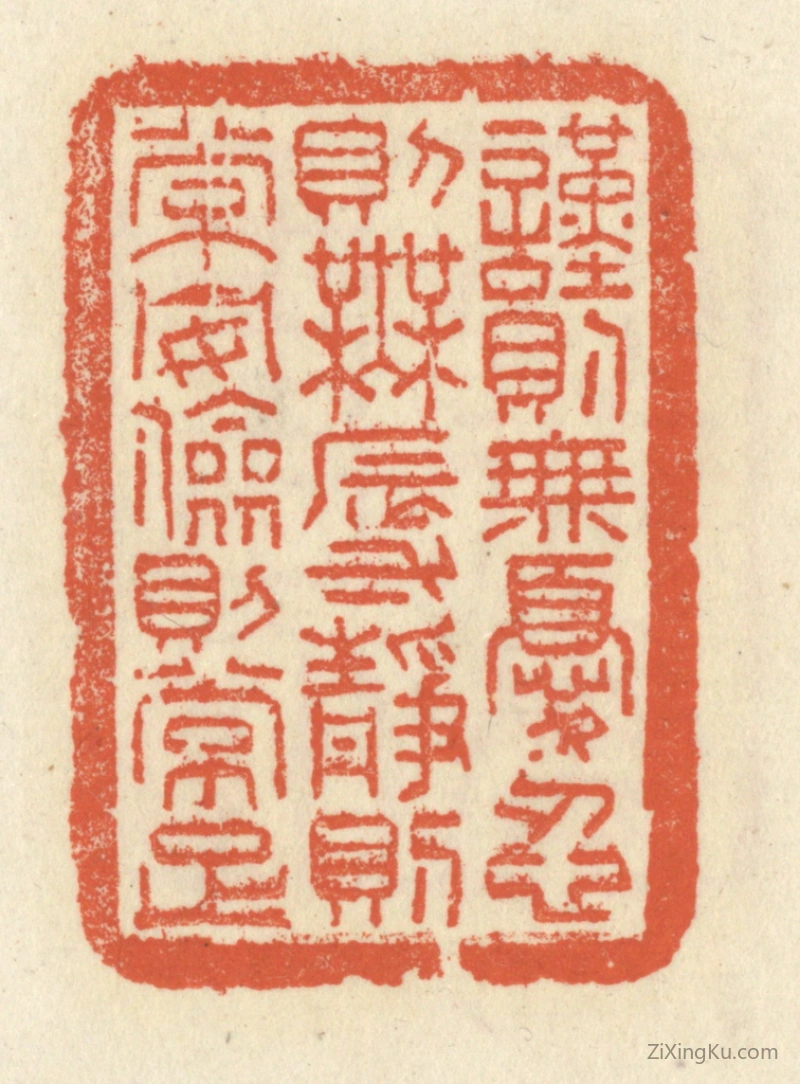 謹則無憂忍
則無辱靜則
常安儉則常足
ZiXingKu.com